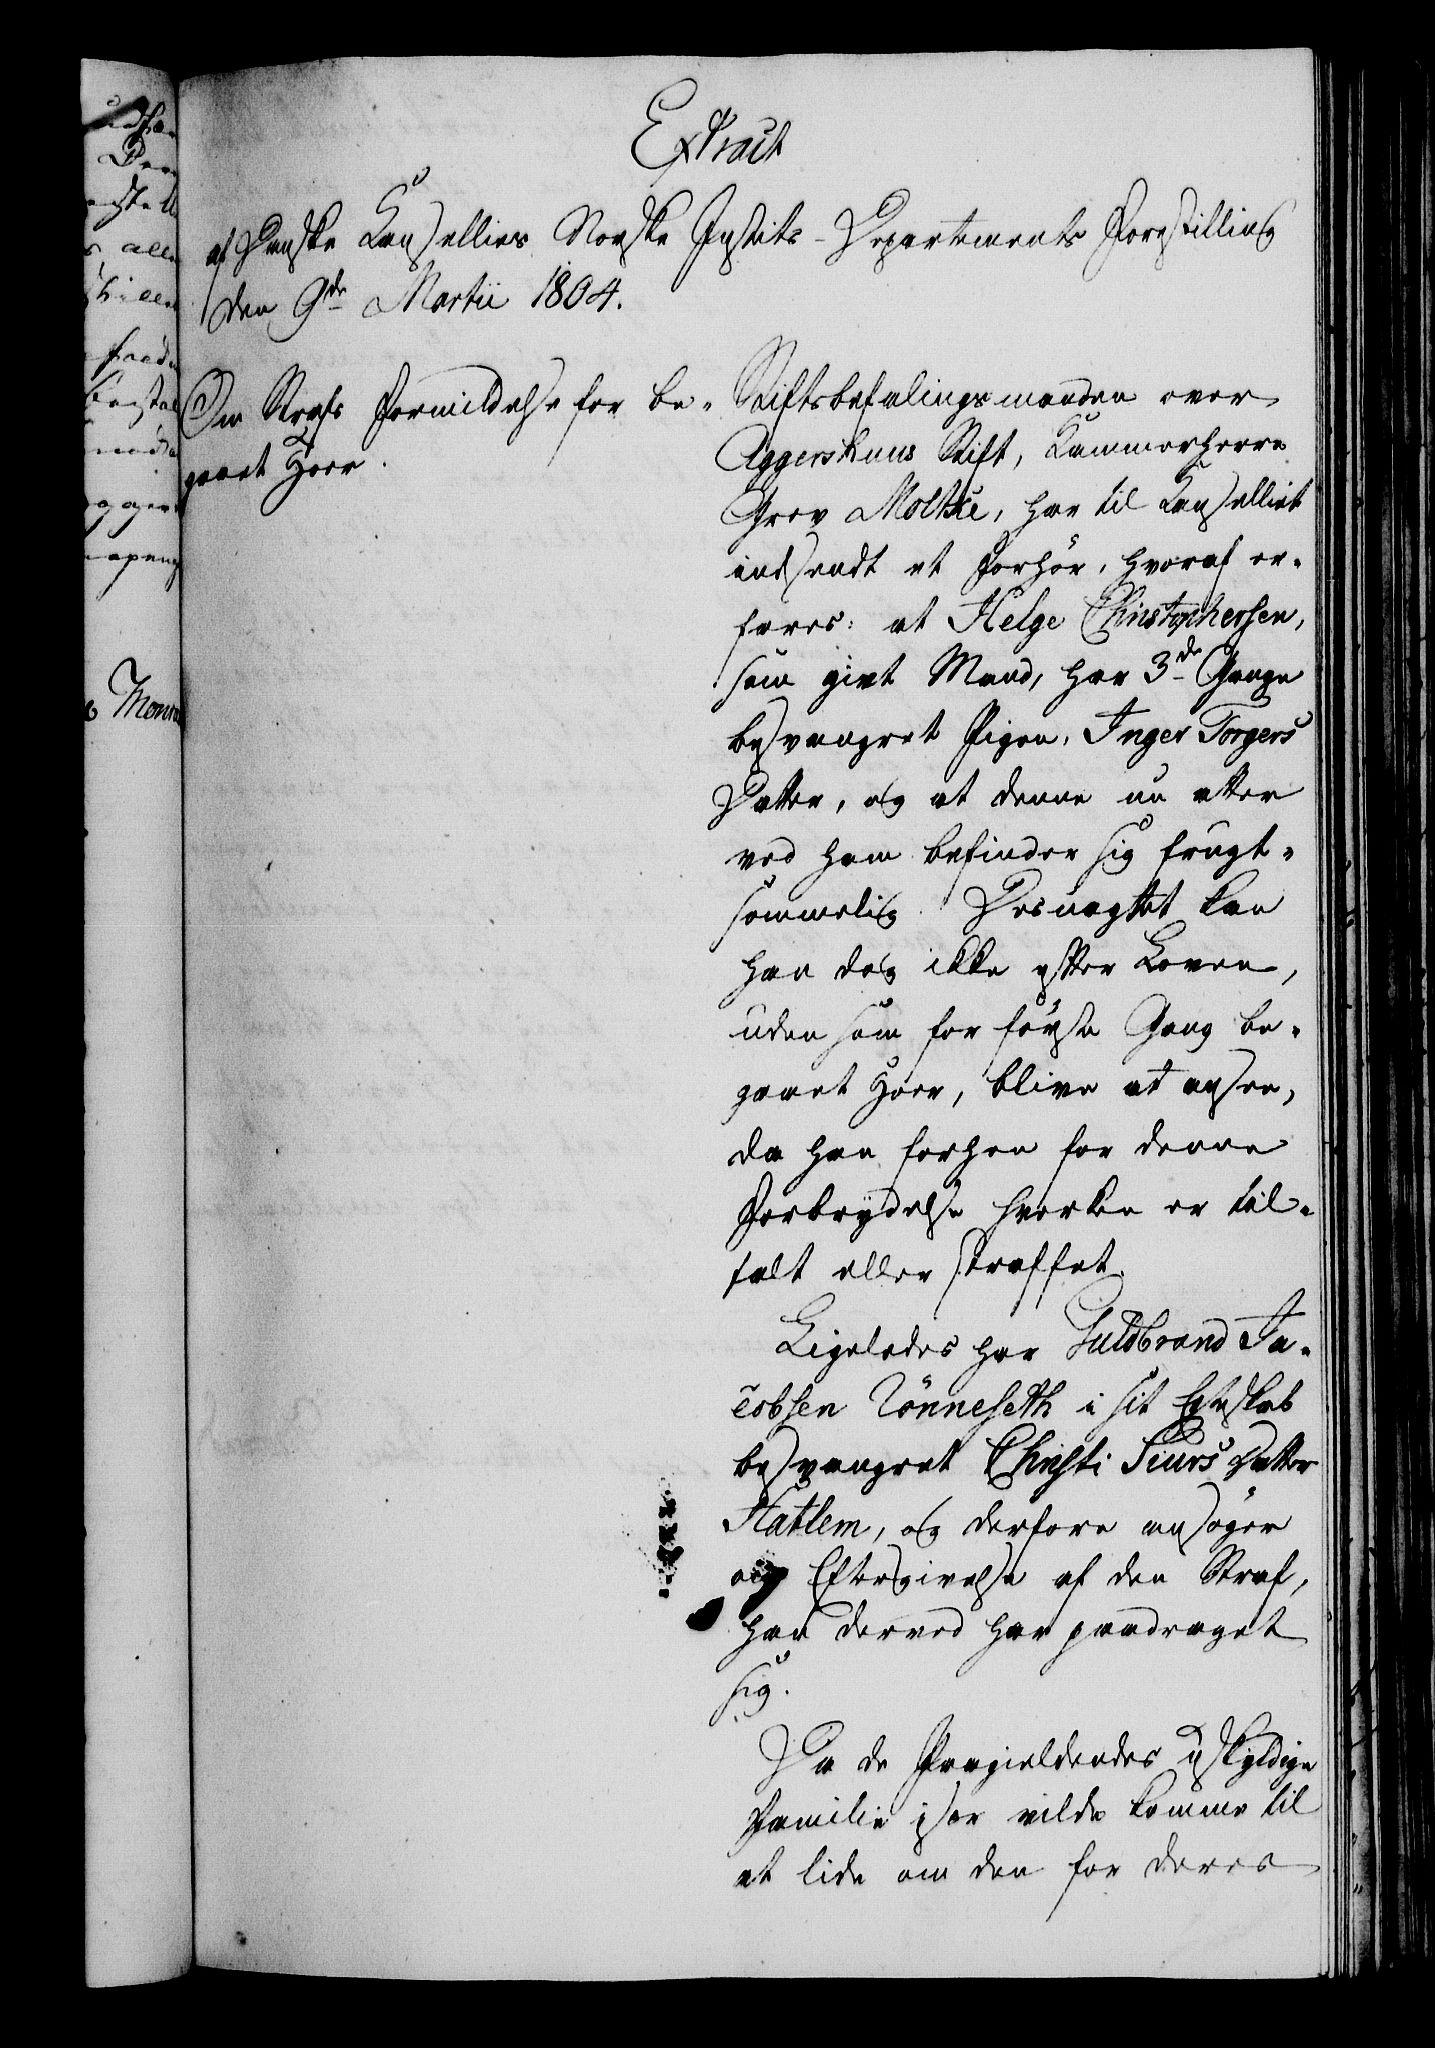 Extract
af Danske Cancellies Norske Justits-Departements Forestilling
den 9de Martii 1804.
Om Strafs Formildelse for be-
gaaet Hoer.
Stiftsbefalingsmanden over
Aggershuus Stift, Kammerherre
Grev Moltke, har til Cancelliet
indsendt et Forhör, hvoraf er-
fares: at Helge Christophersen,
som givt Mand, har 3de Gange
besvangret Pigen, Inger Torgers
Datter, og at denne nu atter
ved ham befinder sig frugt-
sommelig. Desuagtet kan
han dog ikke efter Loven,
uden som for förste Gang be-
gaaet Hoer, blive at ansee,
da han forhen for denne
Forbrydelse hverken er til-
talt eller straffet.
Ligeledes har Guldbrand Ja-
cobsen Rönneseth i sit Egteskab
besvangret Christi Siurs Datter
Hatlem, og derfore ansöger
om Eftergivelse af den Straf,
han derved har paadraget
sig.
Da de Paagieldendes uskyldige
Familie især vilde komme til
at lide om den for deres